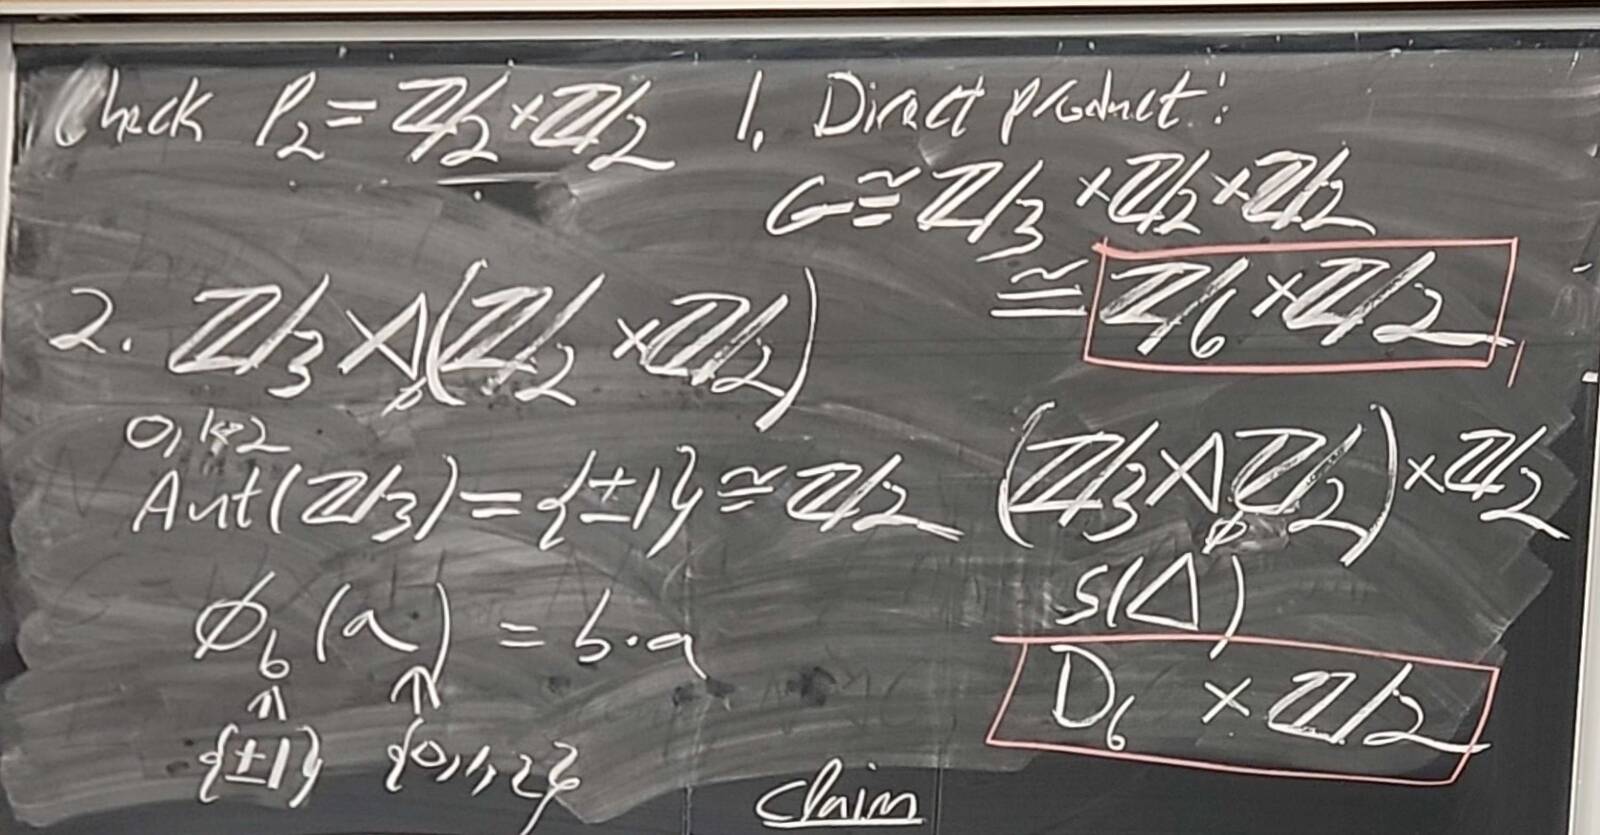 Check P₂ = ℤ/2 × ℤ/2
1. Direct product:
G ≅ ℤ/3 × ℤ/2 × ℤ/2
≅ ℤ/6 × ℤ/2
2. ℤ/3 ⋊_ϕ (ℤ/2 × ℤ/2)
0, 1↔2
Aut(ℤ/3) = {±1} ≅ ℤ/2
ϕ_b (a) = b·a
{±1} {0,1,2}
(ℤ/3 ⋊_ϕ ℤ/2) × ℤ/2
S(Δ)
D₆ × ℤ/2
Claim